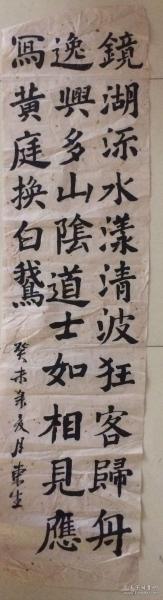 鏡湖流水漾清波狂客歸舟
逸興多山陰道士如相見應
寫黃庭換白鵞
癸未年夏月東生